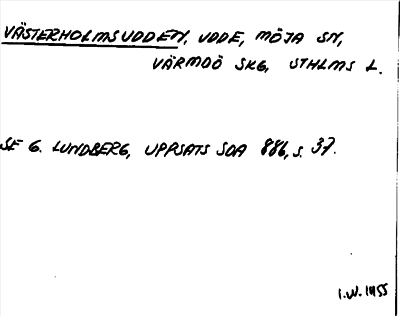 VÄSTERHOLMSUDDEN, UDDE, MÖJA SN,
VÄRMDÖ SKG, STHLMS L.
SE G. LUNDBERG, UPPSATS SOA 886, S. 37.
I.W. 1955